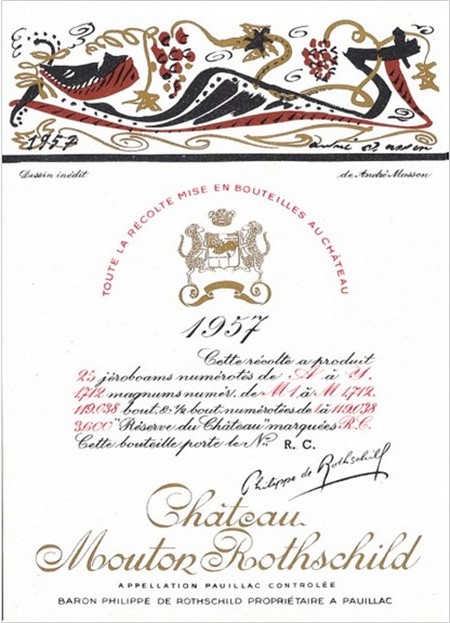 1957 andré masson
Dessin inédit de André Masson
TOUTE LA RÉCOLTE MISE EN BOUTEILLES AU CHÂTEAU
1957
Cette récolte a produit
25 jéroboams numérotés de A à Y.
1712 magnums numér. de M1. à M 1712.
119.038 bout. & ½ bout. numérotées de 1 à 119.038
3.000 "Réserve du Château" marquées R.C.
Cette bouteille porte le No. R. C.
Philippe de Rothschild
Château
Mouton Rothschild
APPELLATION PAUILLAC CONTROLÉE
BARON PHILIPPE DE ROTHSCHILD PROPRIÉTAIRE A PAUILLAC